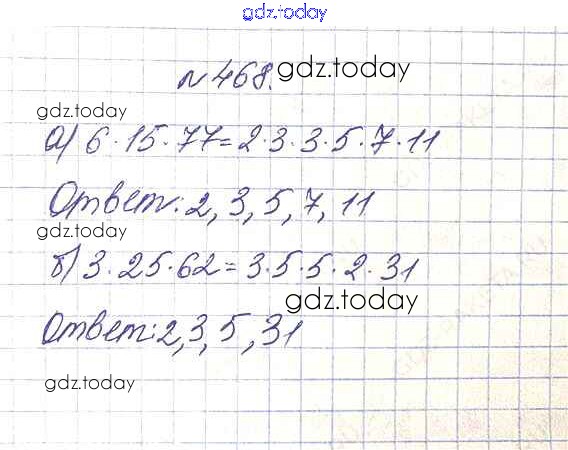 gdz.today
№468. gdz.today
gdz.today
а) 6·15·77=2·3·3·5·7·11
Ответ: 2, 3, 5, 7, 11
gdz.today
б) 3·25·62=3·5·5·2·31
gdz.today
Ответ: 2, 3, 5, 31
gdz.today